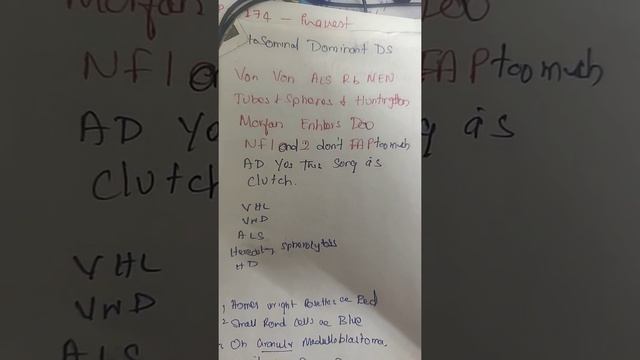 174 - Puavest
tosominal Dominant DS
Von Von ALS Rb MEN
Tubes & Spheres & Huntington
Morfan Enhlers Doo
NF1 and 2 don't FAP too much
AD Yas This Song is
clutch.
VHL
VWD
ALS
Hereditary spherolytosis
HD
1, Homer wright Rosette are Red
2 Small Rond cells are Blue
On Granular Medulloblastoma.